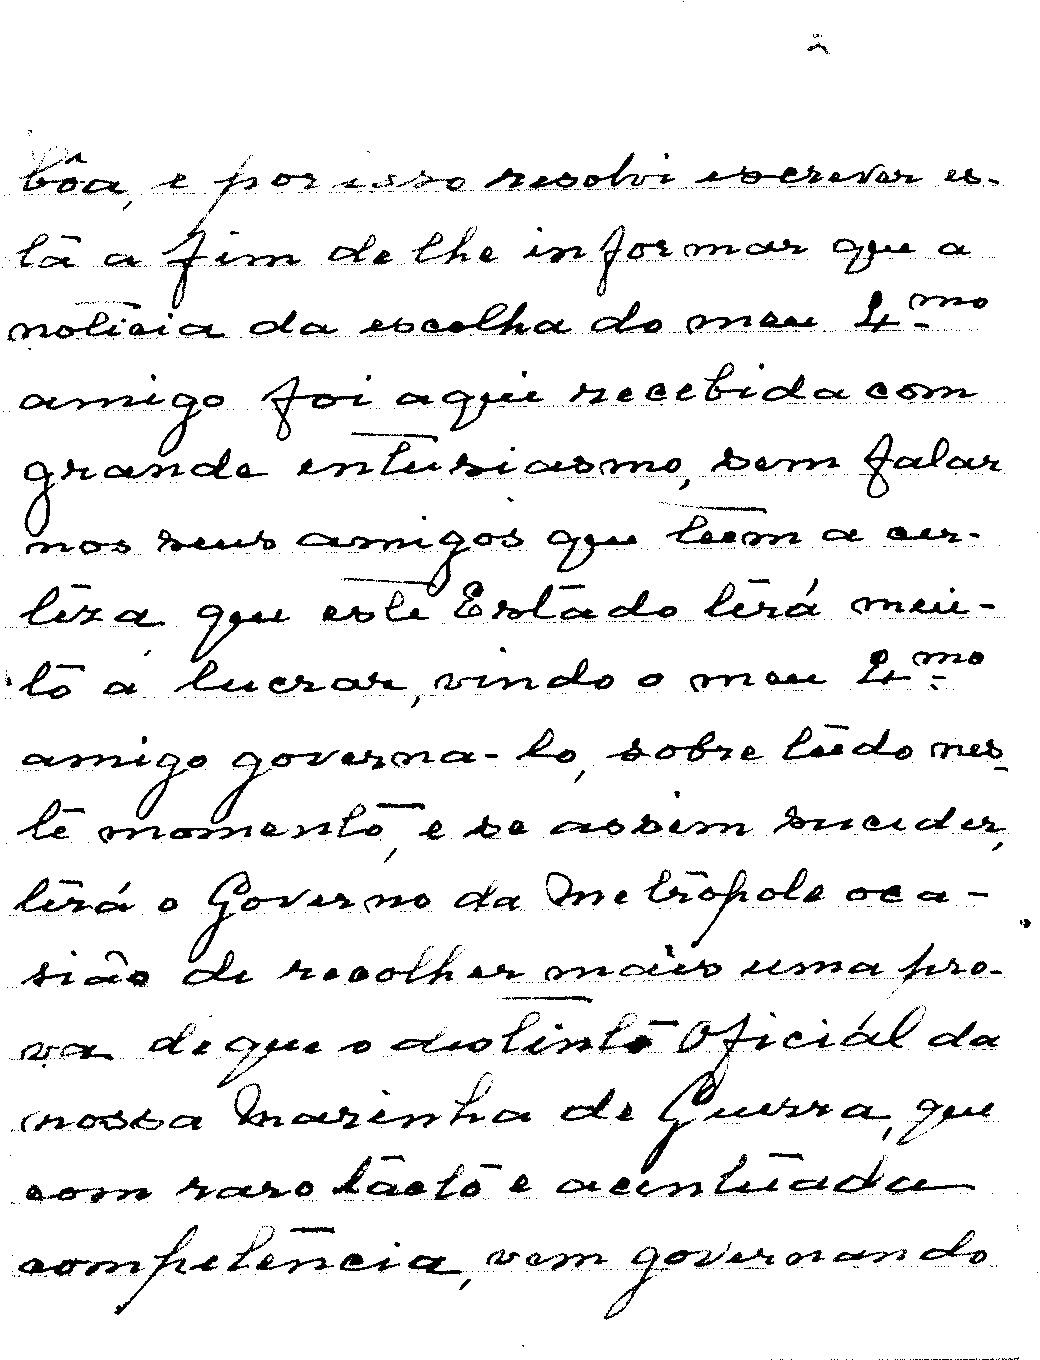 bôa, e por isso resolvi escrever es-
ta a fim de lhe informar que a
noticia da escolha do meu Il.mo
amigo foi aqui recebida com
grande entusiasmo, sem falar
nos seus amigos que teem a cer-
teza que este Estado terá mui-
to a lucrar, vindo o meu Il.mo
amigo governa-lo, sobre tudo nes-
te momento, e se assim suceder,
terá o Governo da Metrópole oca-
sião de recolher mais uma pro-
va de que o distinto Oficial da
nossa Marinha de Guerra, que
com raro tácto e acentuada
competência, vem governando